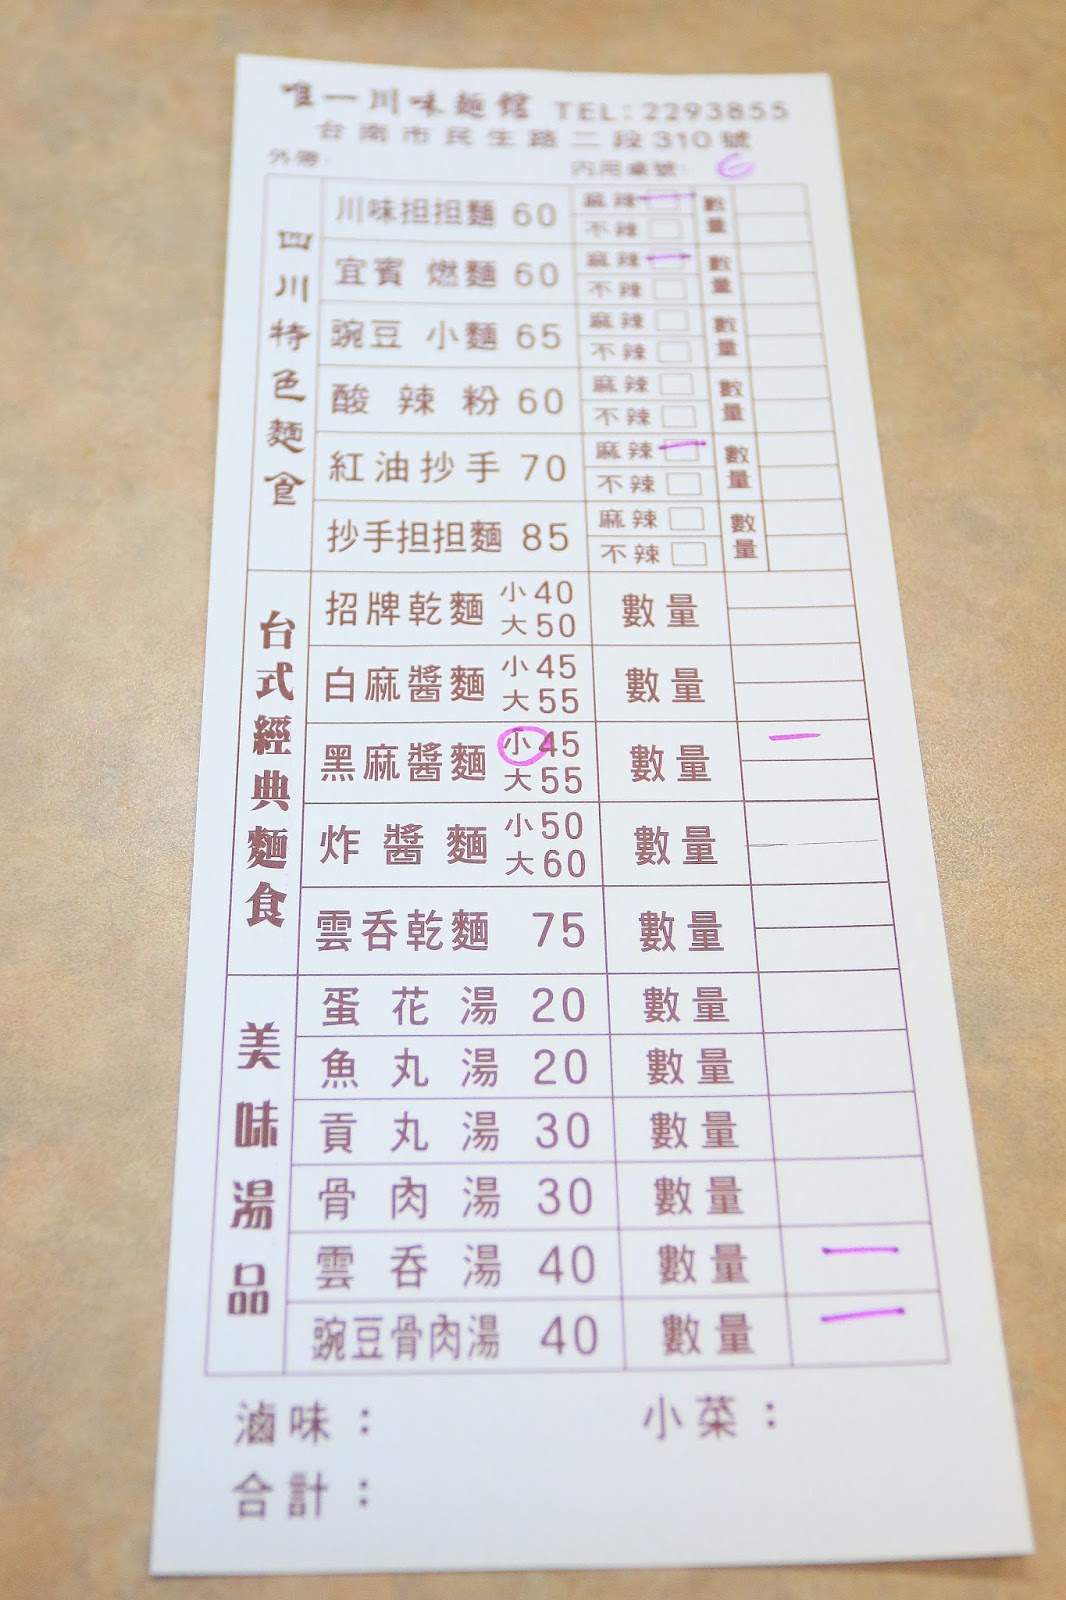 唯一川味麵館 TEL:2293855
台南市民生路二段310號
外帶: 內用桌號: 6
四川特色麵食
川味担担麵 60 麻辣 不辣 數量
宜賓燃麵 60 麻辣 不辣 數量
豌豆小麵 65 麻辣 不辣 數量
酸辣粉 60 麻辣 不辣 數量
紅油抄手 70 麻辣 不辣 數量
抄手担担麵 85 麻辣 不辣 數量
台式經典麵食
招牌乾麵 小40 大50 數量
白麻醬麵 小45 大55 數量
黑麻醬麵 小45 大55 數量 一
炸醬麵 小50 大60 數量
雲吞乾麵 75 數量
美味湯品
蛋花湯 20 數量
魚丸湯 20 數量
貢丸湯 30 數量
骨肉湯 30 數量
雲吞湯 40 數量 一
豌豆骨肉湯 40 數量 一
滷味： 小菜：
合計：